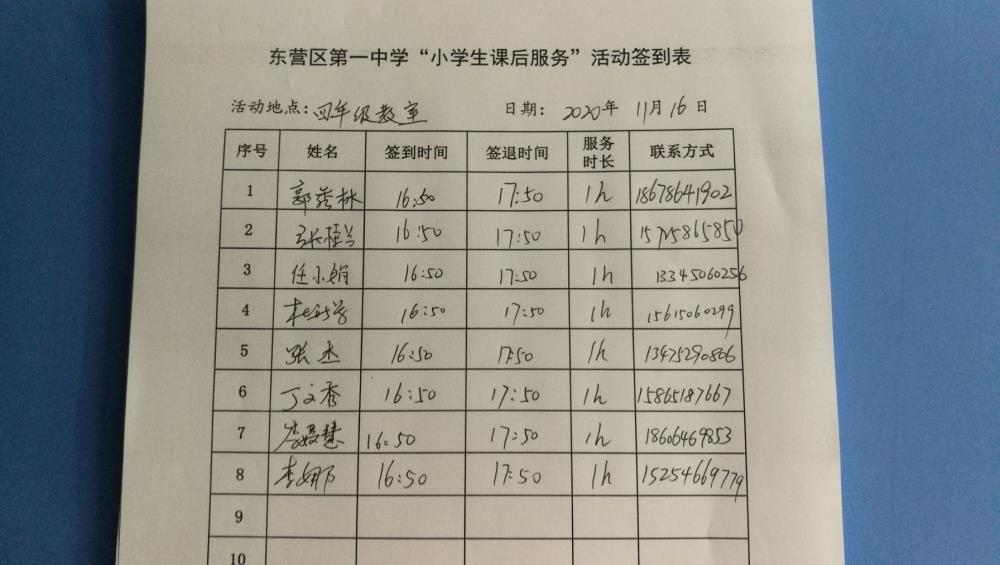 东营区第一中学“小学生课后服务”活动签到表
活动地点：四年级教室 日期： 2020年 11月 16日
序号 姓名 签到时间 签退时间 服务时长 联系方式
1 郭秀林 16:50 17:50 1h 18678641902
2 张桂兰 16:50 17:50 1h 15715865850
3 任小娟 16:50 17:50 1h 13345060256
4 16:50 17:50 1h 15615060299
5 张杰 16:50 17:50 1h 13475290806
6 丁文秀 16:50 17:50 1h 15865187667
7 16:50 17:50 1h 18606469853
8 李娜 16:50 17:50 1h 15254669779
9
10